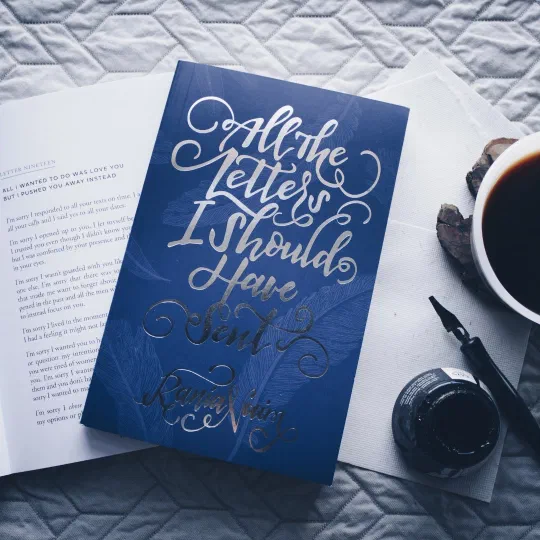 LETTER NINETEEN
ALL I WANTED TO DO WAS LOVE YOU
BUT I PUSHED YOU AWAY INSTEAD
I'm sorry I responded to all your texts on time. I
all your calls and I said yes to all your dates.
I'm sorry I opened up to you, I let myself be
I trusted you even though I didn't know
but I was comforted by your presence and
to your eyes.
I'm sorry I wasn't guarded with you like
else. I'm sorry that there was
that made me want to forget about
pened in the past and all the men
us instead focus on you.
I'm sorry I lived in the moment
I had a feeling it might not la
I'm sorry I wanted you to
or question my intention
you were tired of women
you. I'm sorry I wante
them and you don't ha
sorry I wanted to m
I'm sorry I abou
my options or p
All the
Letters
I Should
Have
Sent
Rania Naim